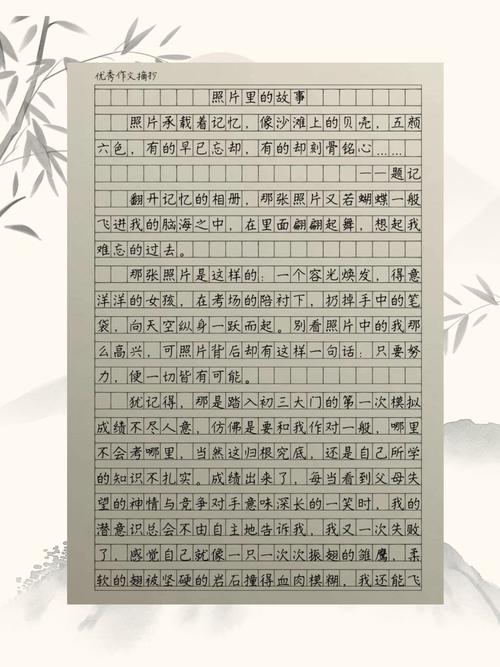 优秀作文摘抄
照片里的故事
照片承载着记忆，像沙滩上的贝壳，五颜
六色，有的早已忘却，有的却刻骨铭心……
——题记
翻开记忆的相册，那张照片又若蝴蝶一般
飞进我的脑海之中，在里面翩翩起舞，想起我
难忘的过去。
那张照片是这样的：一个容光焕发，得意
洋洋的女孩，在考场的陪衬下，扔掉手中的笔
袋，向天空纵身一跃而起。别看照片中的我那
么高兴，可照片背后却有这样一句话：只要努
力，便一切皆有可能。
犹记得，那是踏入初三大门的第一次模拟
成绩不尽人意，仿佛是要和我作对一般，哪里
不会考哪里，当然这归根究底，还是自己所学
的知识不扎实。成绩出来了，每当看到父母失
望的神情与竞争对手意味深长的一笑时，我的
潜意识总会不由自主地告诉我，我又一次失败
了，感觉自己就像一只一次次振翅的雏鹰，柔
软的翅被坚硬的岩石撞得血肉模糊，我还能飞